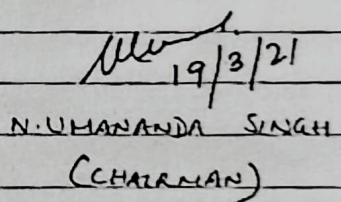 19/3/21
N. UMANANDA SINGH
(CHAIRMAN)